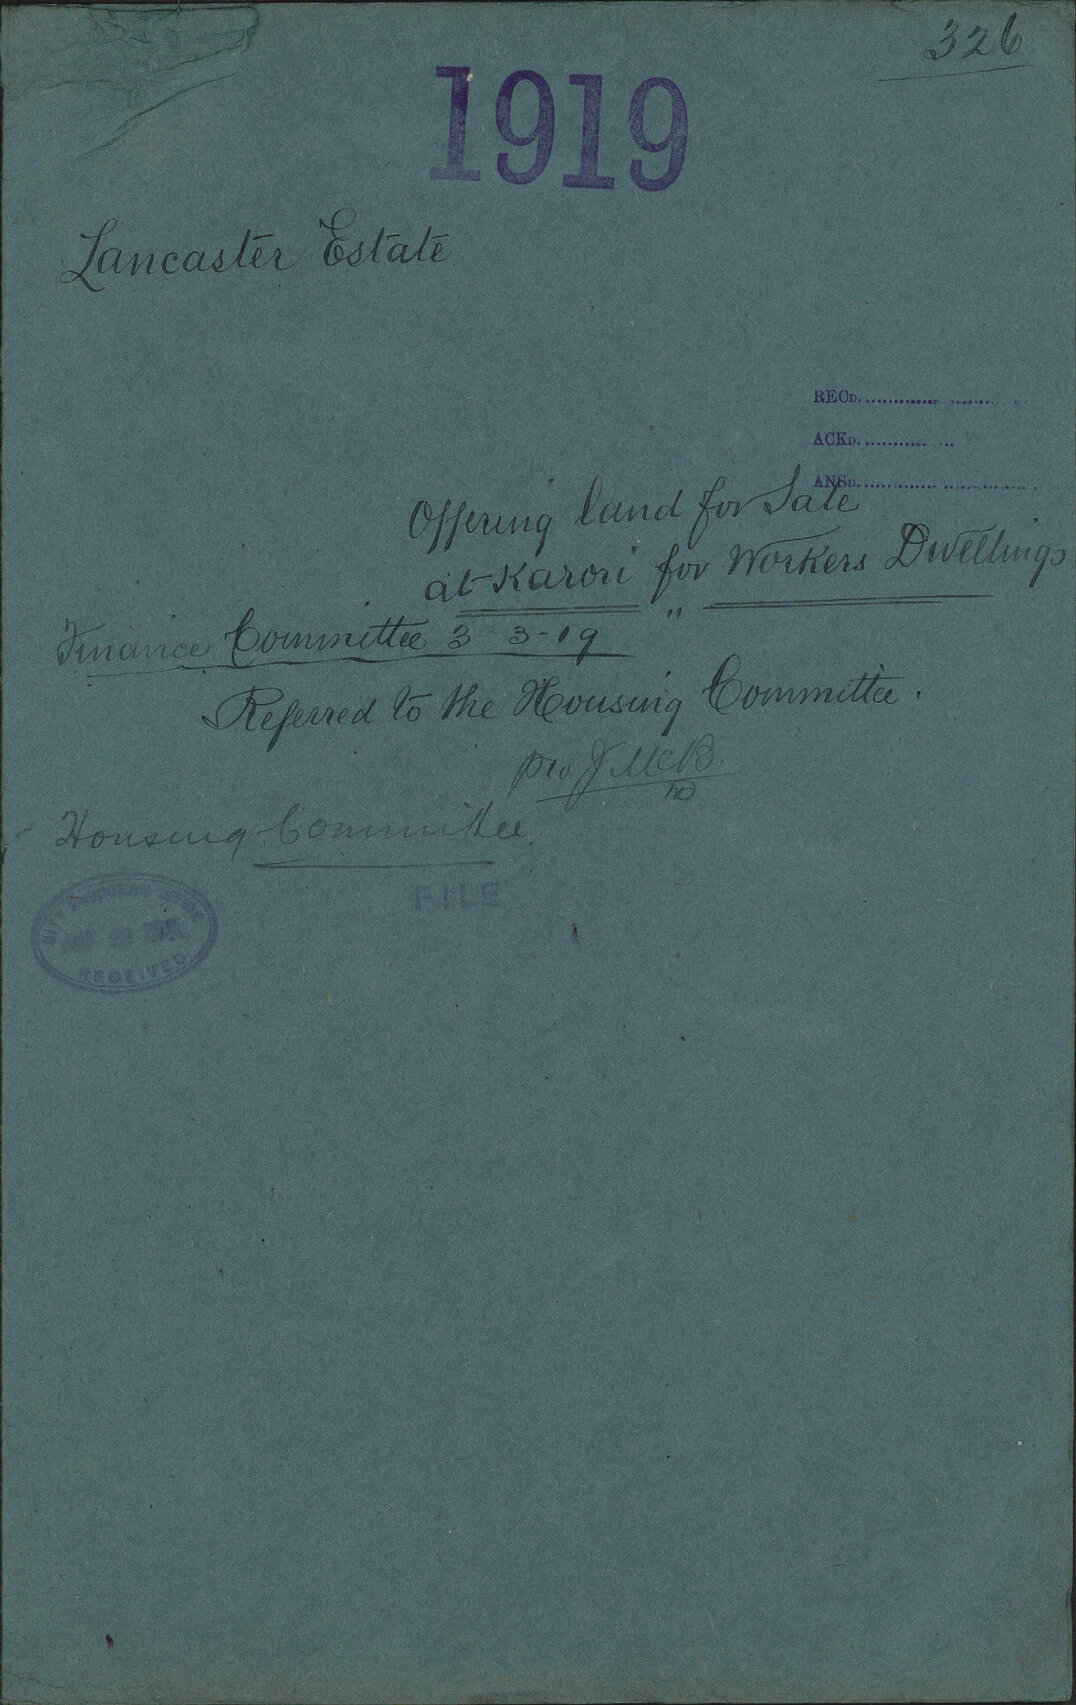 326
1919
Lancaster Estate
RECD.
ACKD.
ANSD.
Offering land for Sale
at Karori for Workers Dwellings
"
Finance Committee 3-3-19
Referred to the Housing Committee.
pro J McB.
Housing Committee
FILE
RECEIVED